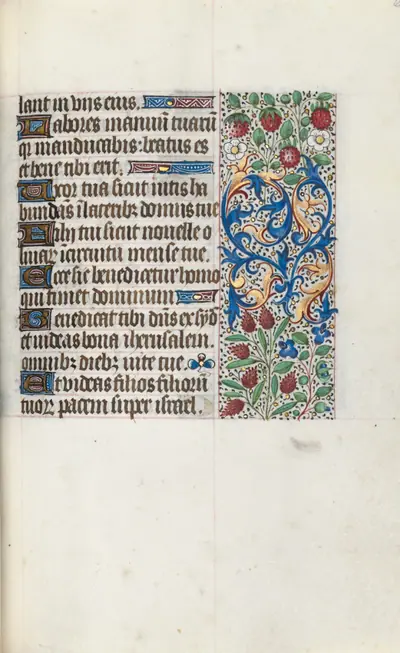 lant in vijs eius.
Labores manuum tuarū
q̄ manducabis: beatus es
et bene tibi erit.
Uxor tua sicut vitis ha
bundās ī laterib; domus tue
Filij tui sicut nouelle o
liuar̄ in circuitu mense tue.
Ecce sic benedicetur homo
qui timet dominum
Benedicat tibi dn̄s ex syō
et videas bona iherusalem.
omnib; dieb; vite tue
Et videas filios filiorū
tuor̄ pacem super israel.